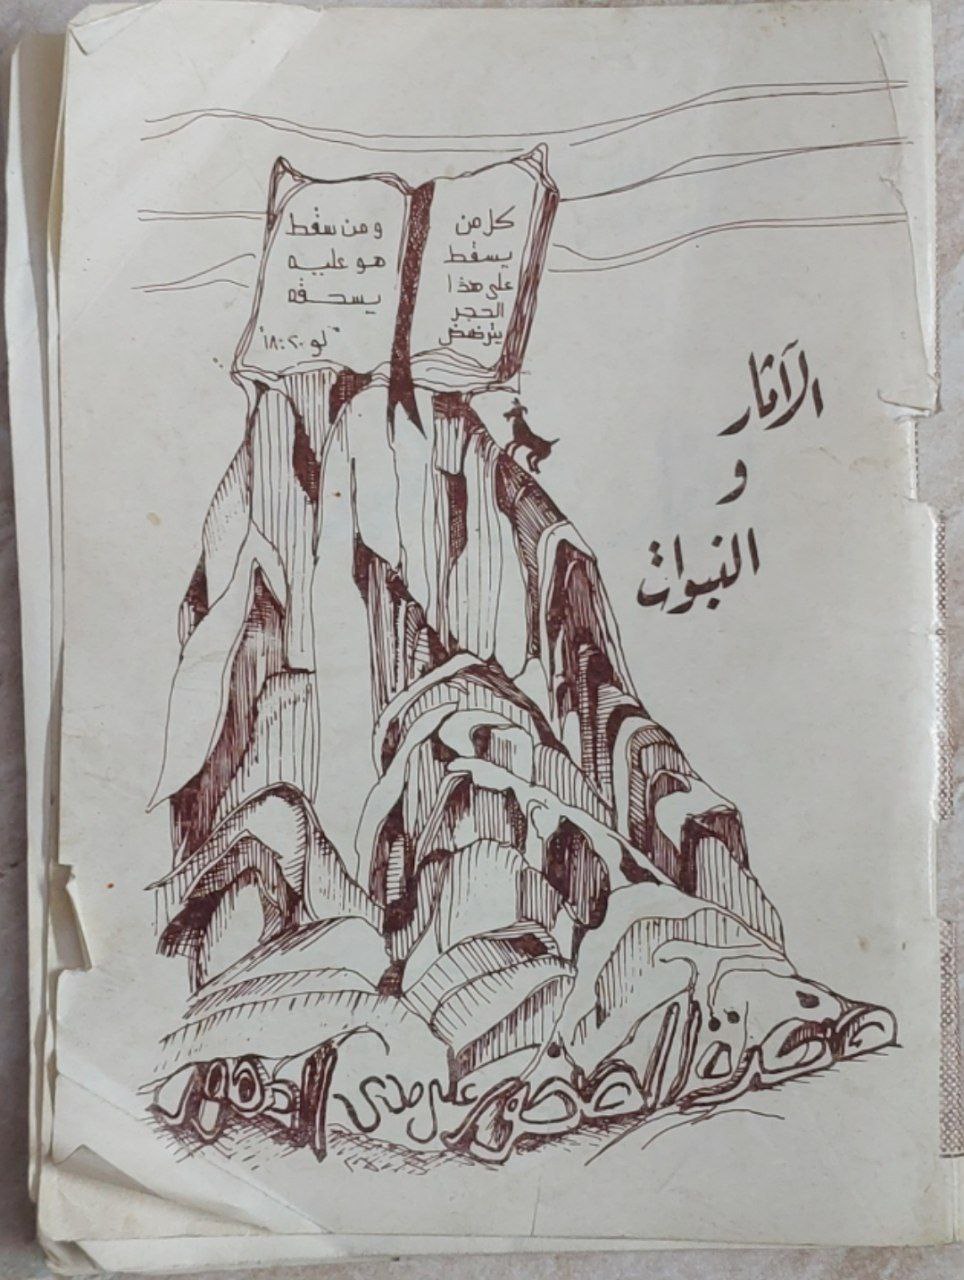 كل من
يسقط
على هذا
الحجر
يترضض
ومن سقط
هو عليه
يسحقه
لو ٢٠ : ١٨
الآثار
و
النبوات
صخرة الصخور على مدى الدهور